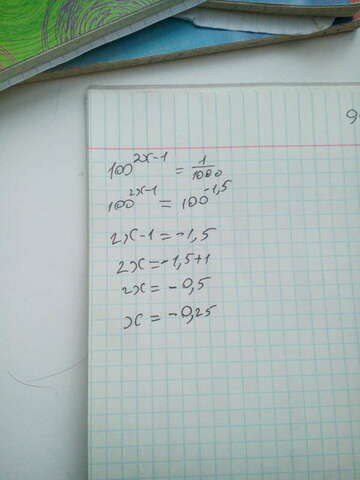 100^{2x-1} = \frac{1}{1000}
100^{2x-1} = 100^{-1,5}
2x-1=-1,5
2x=-1,5+1
2x=-0,5
x=-0,25